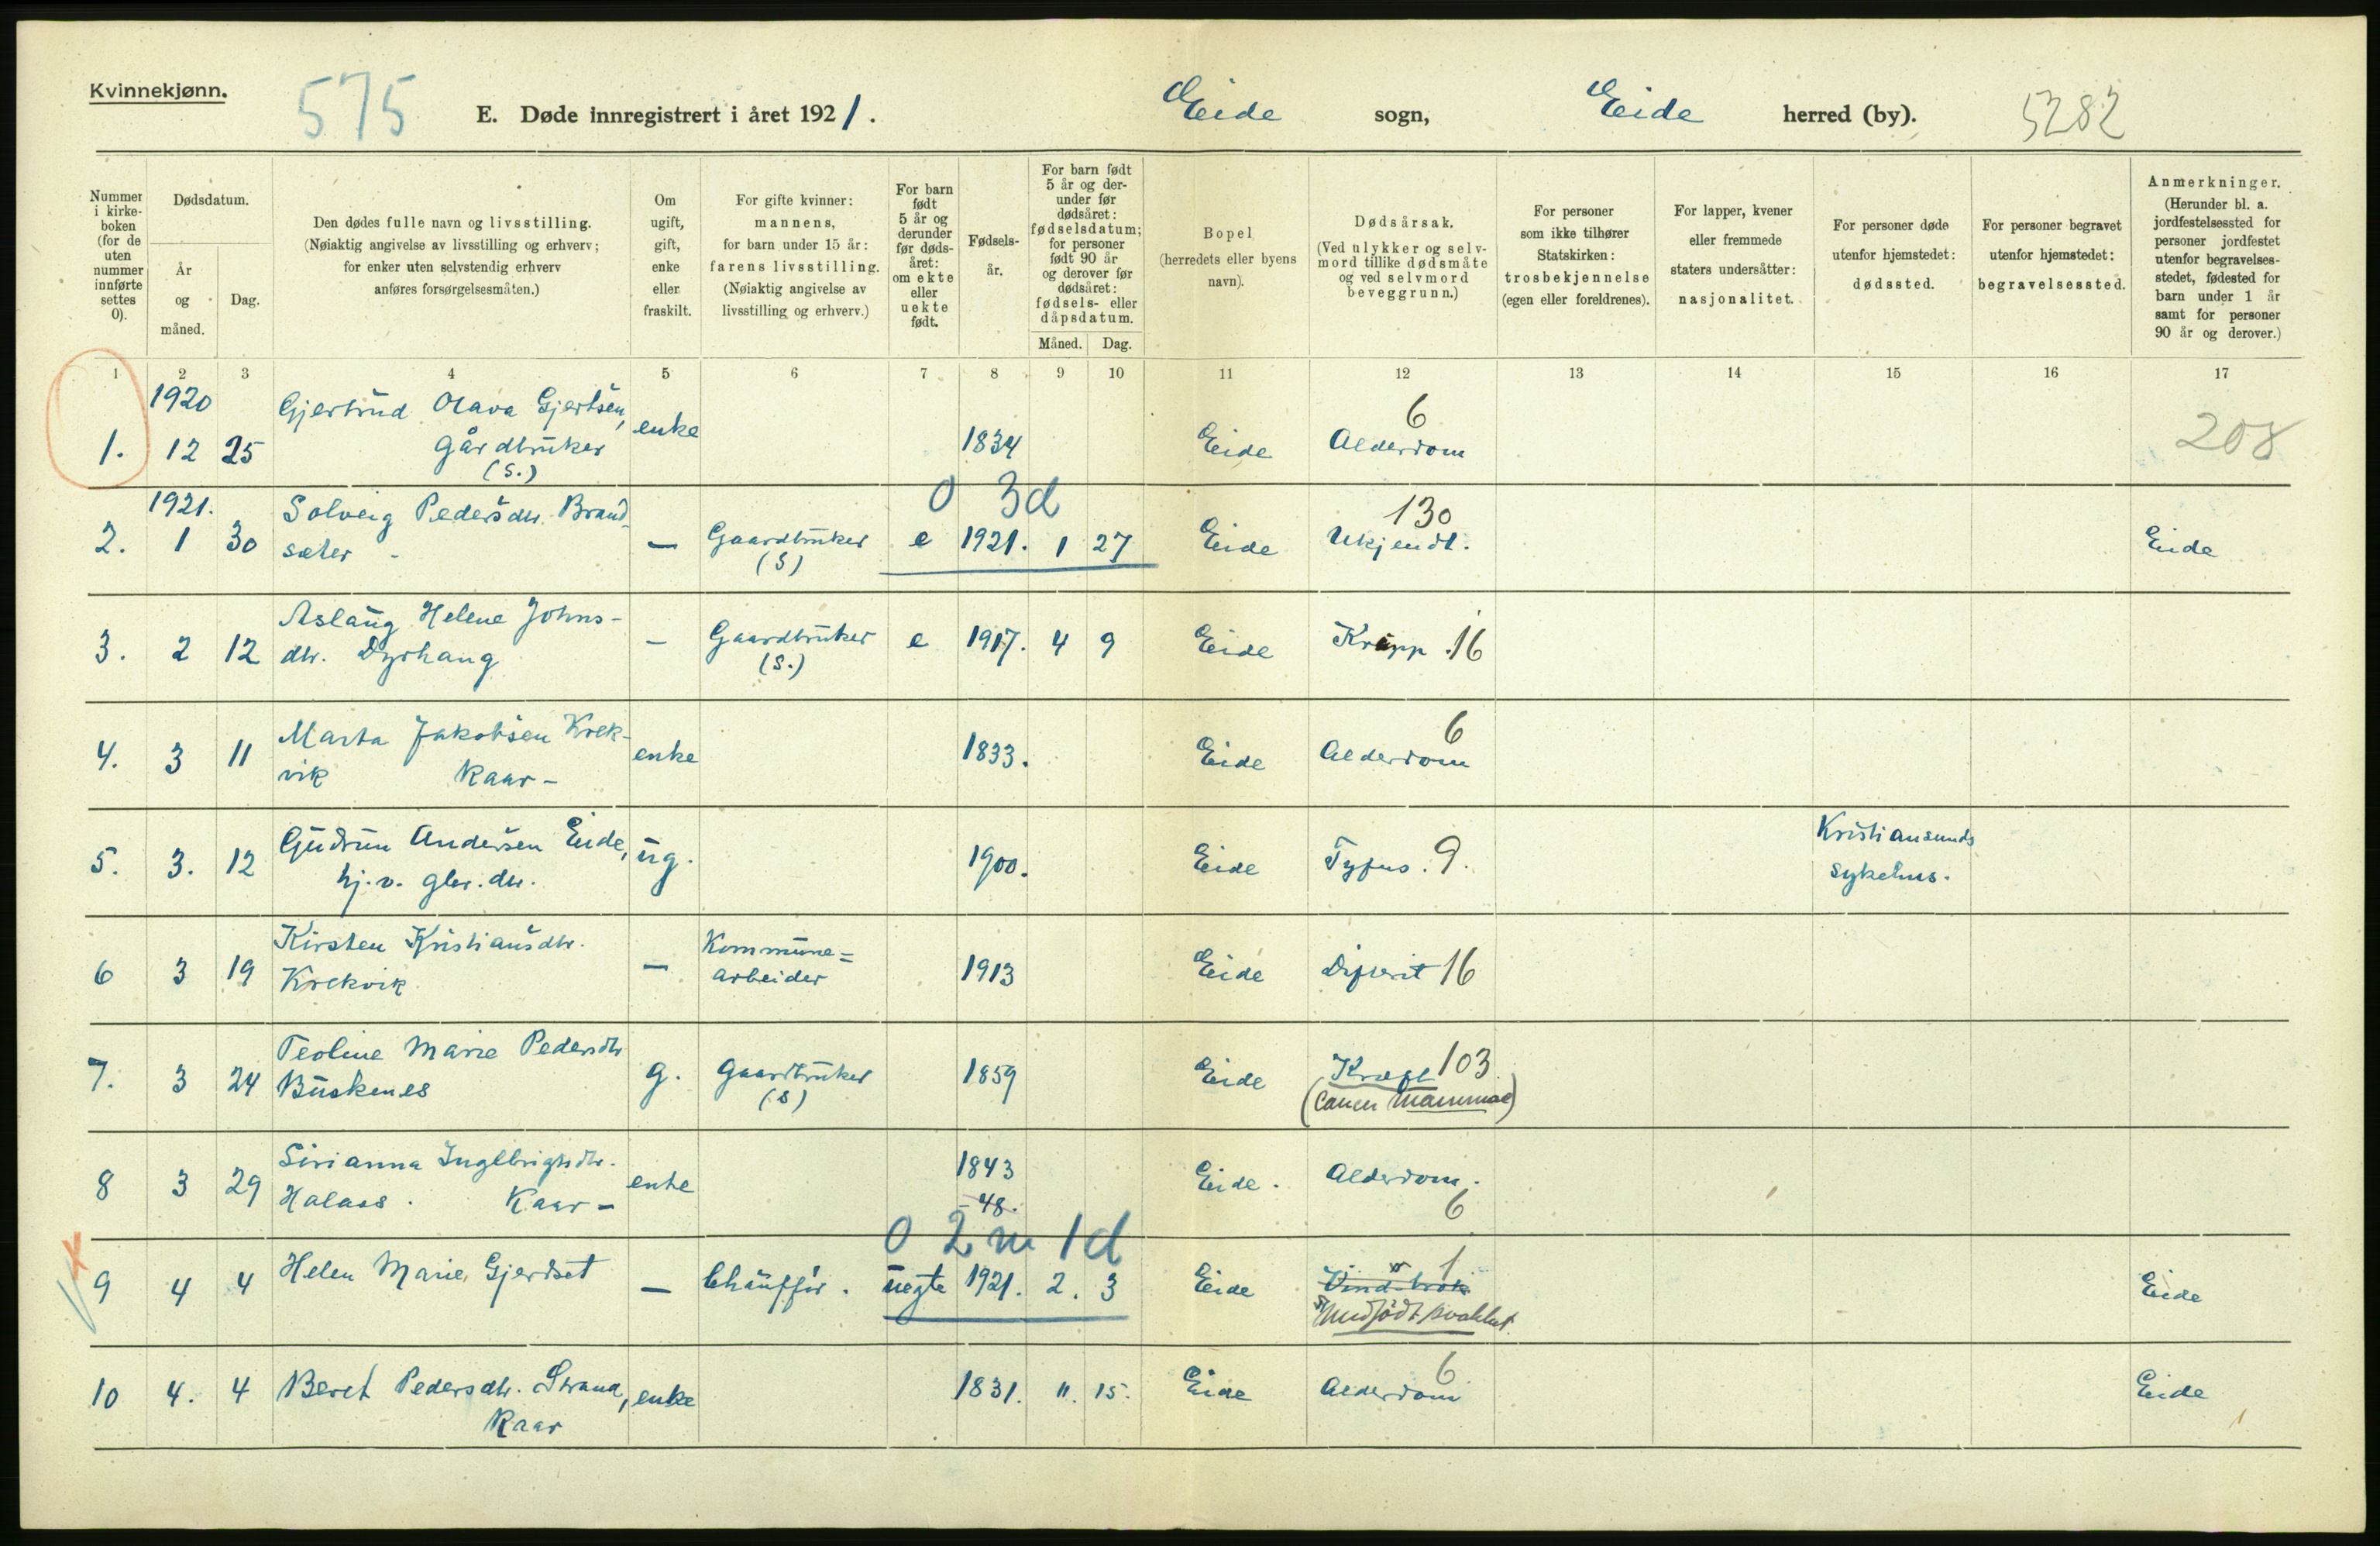 Kvinnekjønn.
575
E. Døde innregistrert i året 1921.
Eide sogn, Eide herred (by).
5282
Nummer i kirke-boken (for de uten nummer innførte settes 0).
Dødsdatum.
År og måned.
Dag.
Den dødes fulle navn og livsstilling.
(Nøiaktig angivelse av livsstilling og erhverv;
for enker uten selvstendig erhverv
anføres forsørgelsesmåten.)
Om ugift, gift, enke eller fraskilt.
For gifte kvinner:
mannens,
for barn under 15 år:
farens livsstilling.
(Nøiaktig angivelse av
livsstilling og erhverv.)
For barn født 5 år og derunder før døds-året: om ekte eller uekte født.
Fødsels-år.
For barn født 5 år og der-under før dødsåret: fødselsdatum; for personer født 90 år og derover før dødsåret: fødsels- eller dåpsdatum.
Måned. Dag.
Bopel
(herredets eller byens
navn).
Dødsårsak.
(Ved ulykker og selv-
mord tillike dødsmåte
og ved selvmord
beveggrunn.)
For personer
som ikke tilhører
Statskirken:
trosbekjennelse
(egen eller foreldrenes).
For lapper, kvener
eller fremmede
staters undersåtter:
nasjonalitet.
For personer døde
utenfor hjemstedet:
dødssted.
For personer begravet
utenfor hjemstedet:
begravelsessted.
Anmerkninger.
(Herunder bl. a.
jordfestelsessted for
personer jordfestet
utenfor begravelses-
stedet, fødested for
barn under 1 år
samt for personer
90 år og derover.)
1 2 3 4 5 6 7 8 9 10 11 12 13 14 15 16 17
1920 Gjertrud Olava Gjertsen, 6
1. 12 25 Gårdbruker enke 1834 Eide Alderdom 208
(S.)
1921. Solveig Pedersdtr. Brand- 0 3d 130
2. 1 30 sæter - — Gaardbruker e 1921. 1 27 Eide Ukjendt. Eide
(S)
Aslaug Helene Johns-
3. 2 12 dtr. Dyrhaug — Gaardbruker e 1917. 4 9 Eide Krupp. 16
(S.)
Marta Jakobsen Krek- 6
4. 3 11 vik Kaar - enke 1833. Eide Alderdom
Gudrun Andersen Eide, Kristiansunds
5. 3. 12 hj.v. gbr. dtr. ug. 1900. Eide Tyfus. 9. sykehus.
Kirsten Kristiansdtr. Kommune=
6 3 19 Krekvik — arbeider 1913 Eide Difterit 16
Teoline Marie Pedersdtr
7. 3 24 Buskenes g. Gaardbruker 1859 Eide Kræft 103
(S) (Cancer Mammae)
Sirianna Ingebrigtsdtr. 1843
8 3 29 Halaas. Kaar - enke - 48. Eide. Alderdom. 6
0 2m 1d
X
9 4 4 Helen Marie Gjerdset — Chauffør. uegte 1921. 2. 3 Eide 1 Eide
Medfødt svakhet.
6
10 4. 4 Beret Pedersdtr. Strand, enke 1831. 11. 15. Eide Alderdom Eide
Kaar